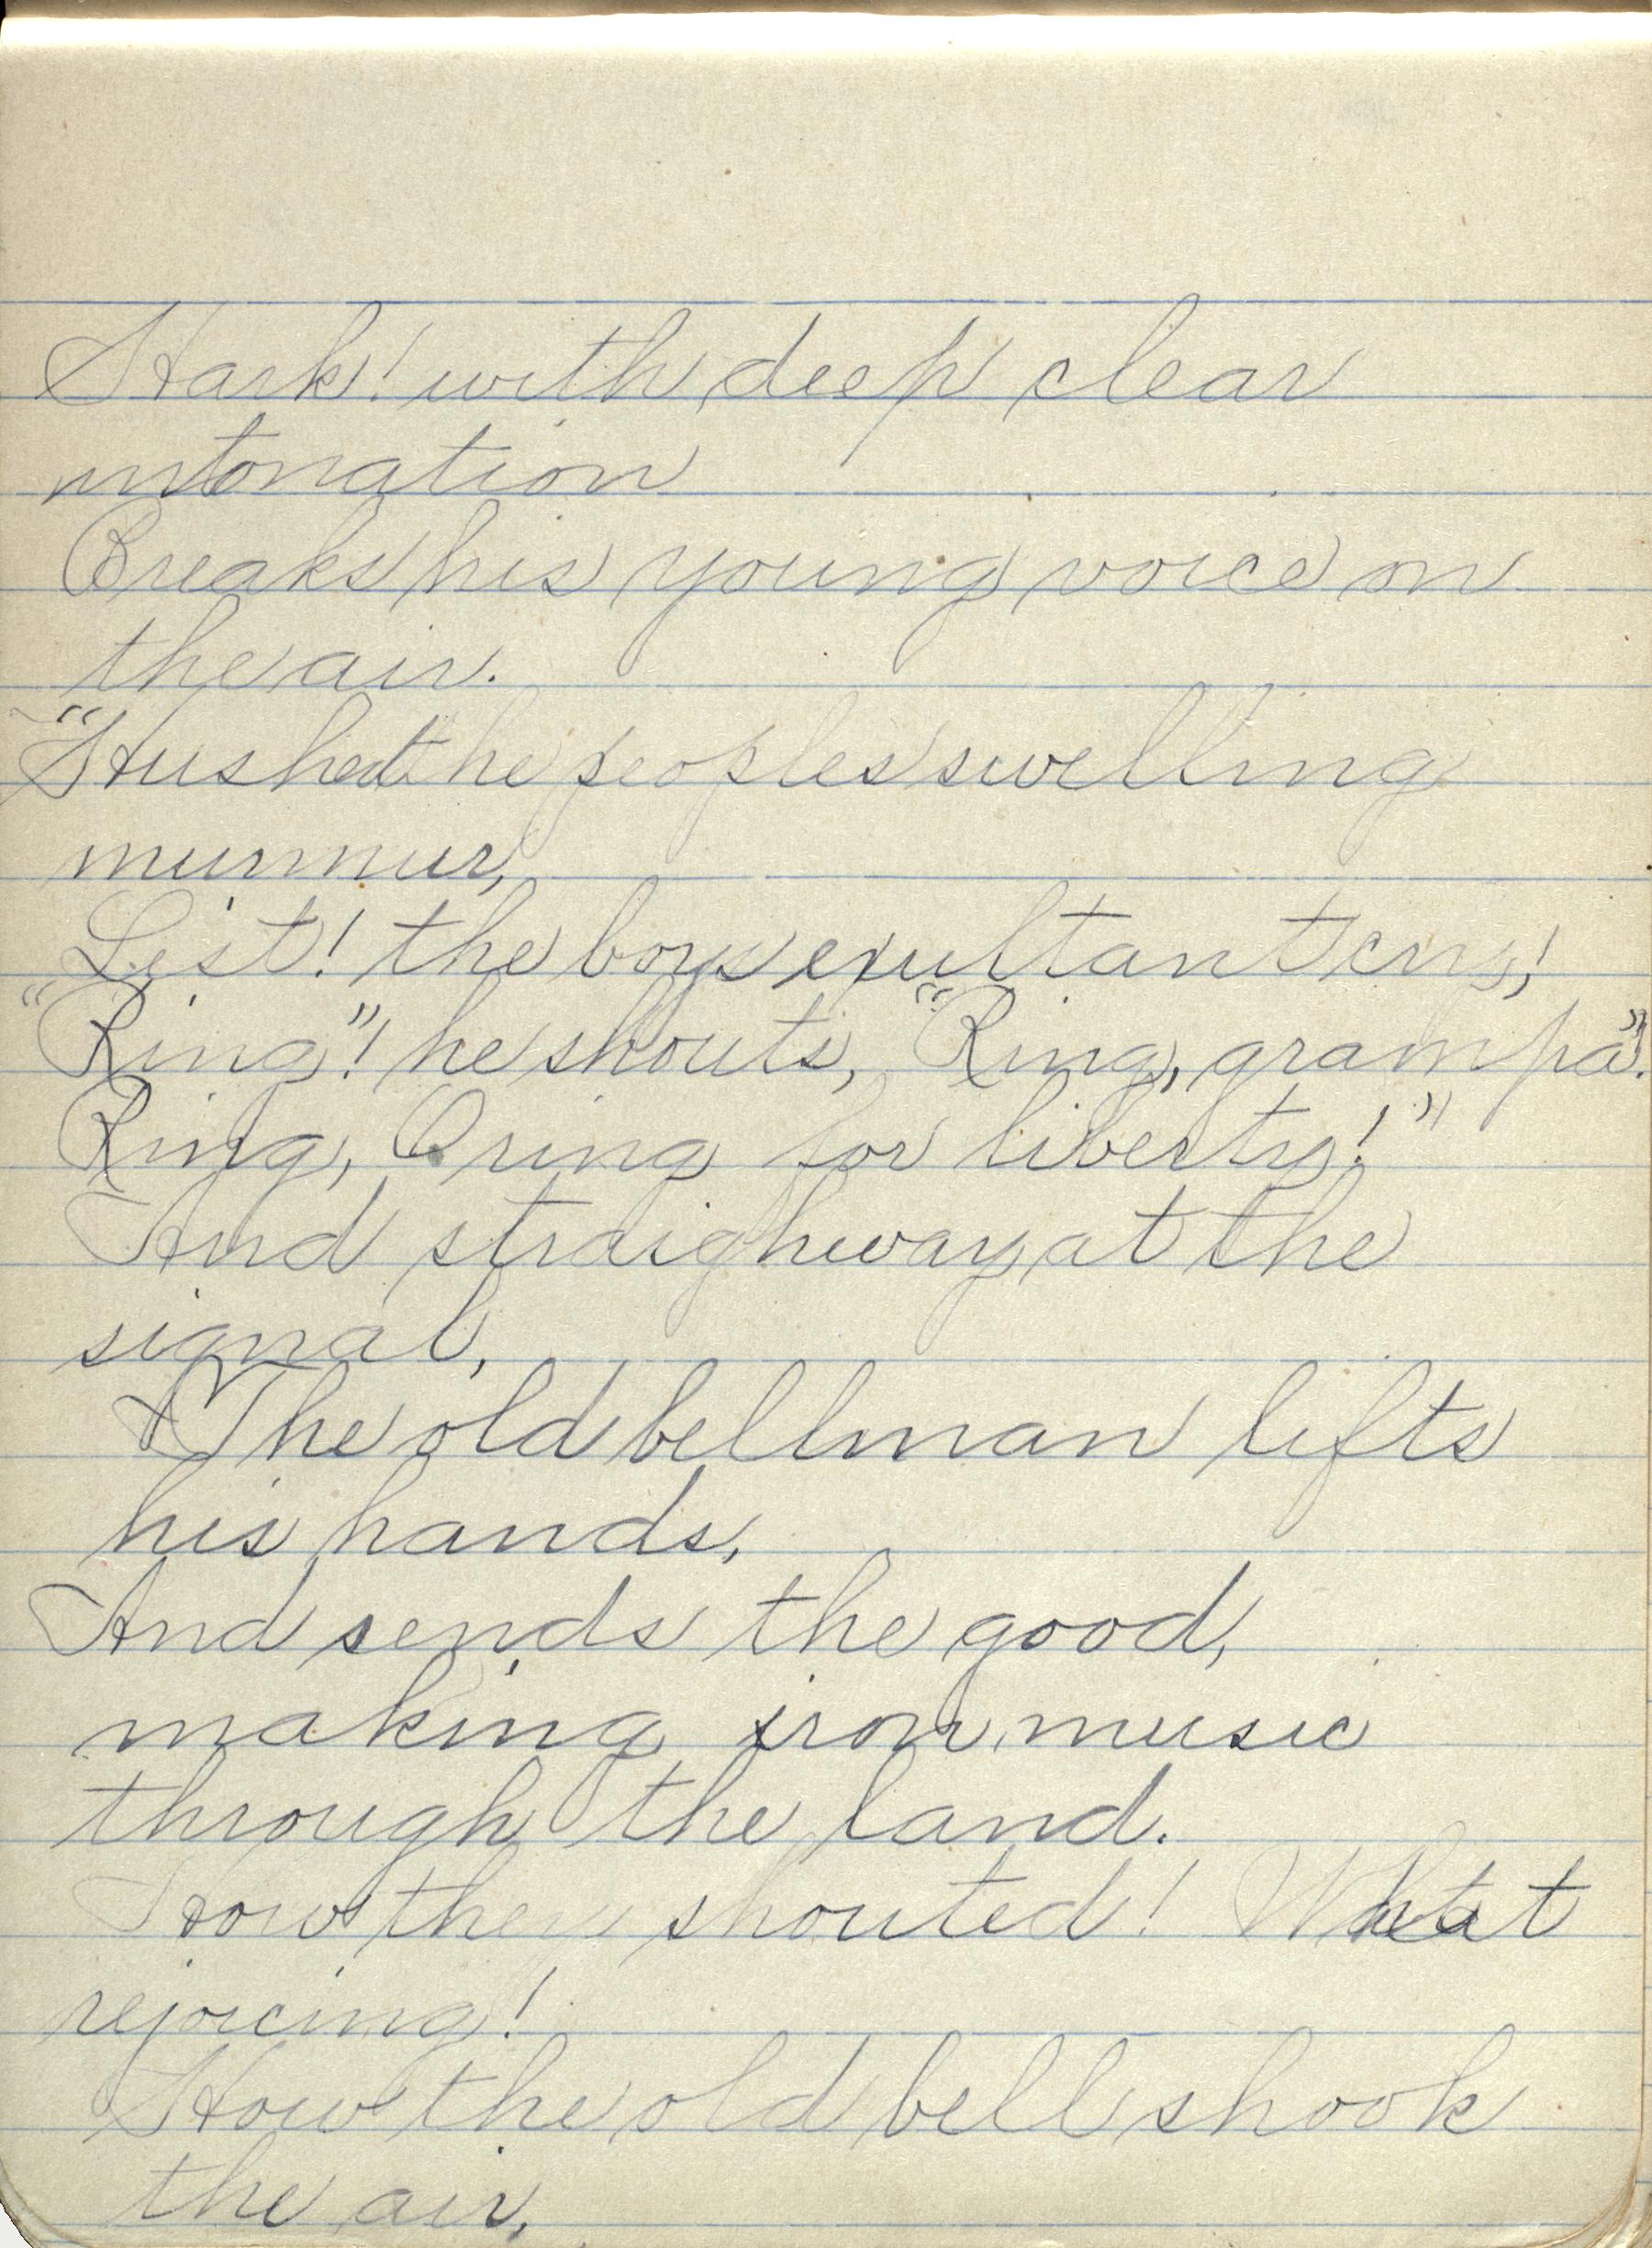 Hark! with deep clear
intonation
Breaks his young voice on
the air.
"Hushed the peoples swelling
murmur,
List! the boys exultant cry!
"Ring"! he shouts, "Ring, grampa".
Ring, O ring for liberty!"
And straighway at the
signal,
The old bellman lifts
his hands,
And sends the good,
making iron music
through the land.
How they shouted! What
rejoicing!
How the old bell shook
the air,